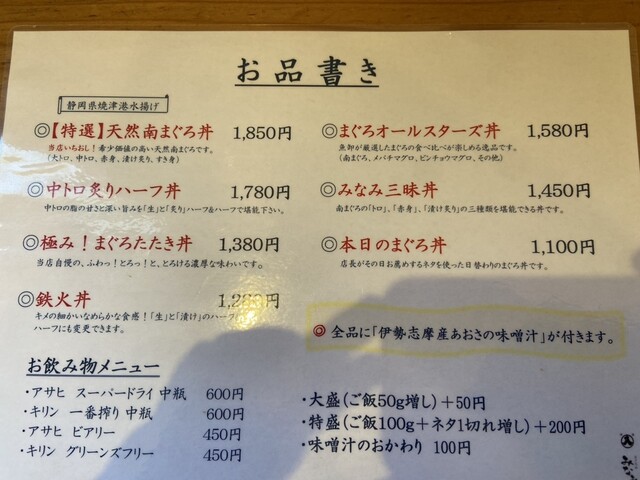 お品書き
静岡県焼津港水揚げ
◎【特選】天然南まぐろ丼 1,850円
当店いちおし!希少価値の高い天然南まぐろです。
(大トロ、中トロ、赤身、漬け炙り、すき身)
◎中トロ炙りハーフ丼 1,780円
中トロの脂の甘さと深い旨みを「生」と「炙り」ハーフ&ハーフで堪能下さい。
◎極み!まぐろたたき丼 1,380円
当店自慢の、ふわっ!とろっ!と、とろける濃厚な味わいです。
◎鉄火丼 1,280円
キメの細かいなめらかな食感!「生」と「漬け」のハーフ
ハーフにも変更できます。
◎まぐろオールスターズ丼 1,580円
魚卸が厳選したまぐろの食べ比べが楽しめる逸品です。
(南まぐろ、メバチマグロ、ビンチョウマグロ、その他)
◎みなみ三昧丼 1,450円
南まぐろの「トロ」、「赤身」、「漬け炙り」の三種類を堪能できる丼です。
◎本日のまぐろ丼 1,100円
店長がその日お薦めするネタを使った日替わりのまぐろ丼です。
◎ 全品に「伊勢志摩産あおさの味噌汁」が付きます。
お飲み物メニュー
・アサヒ スーパードライ 中瓶 600円
・キリン 一番搾り 中瓶 600円
・アサヒ ビアリー 450円
・キリン グリーンズフリー 450円
・大盛(ご飯50g増し)+50円
・特盛(ご飯100g+ネタ1切れ増し)+200円
・味噌汁のおかわり 100円